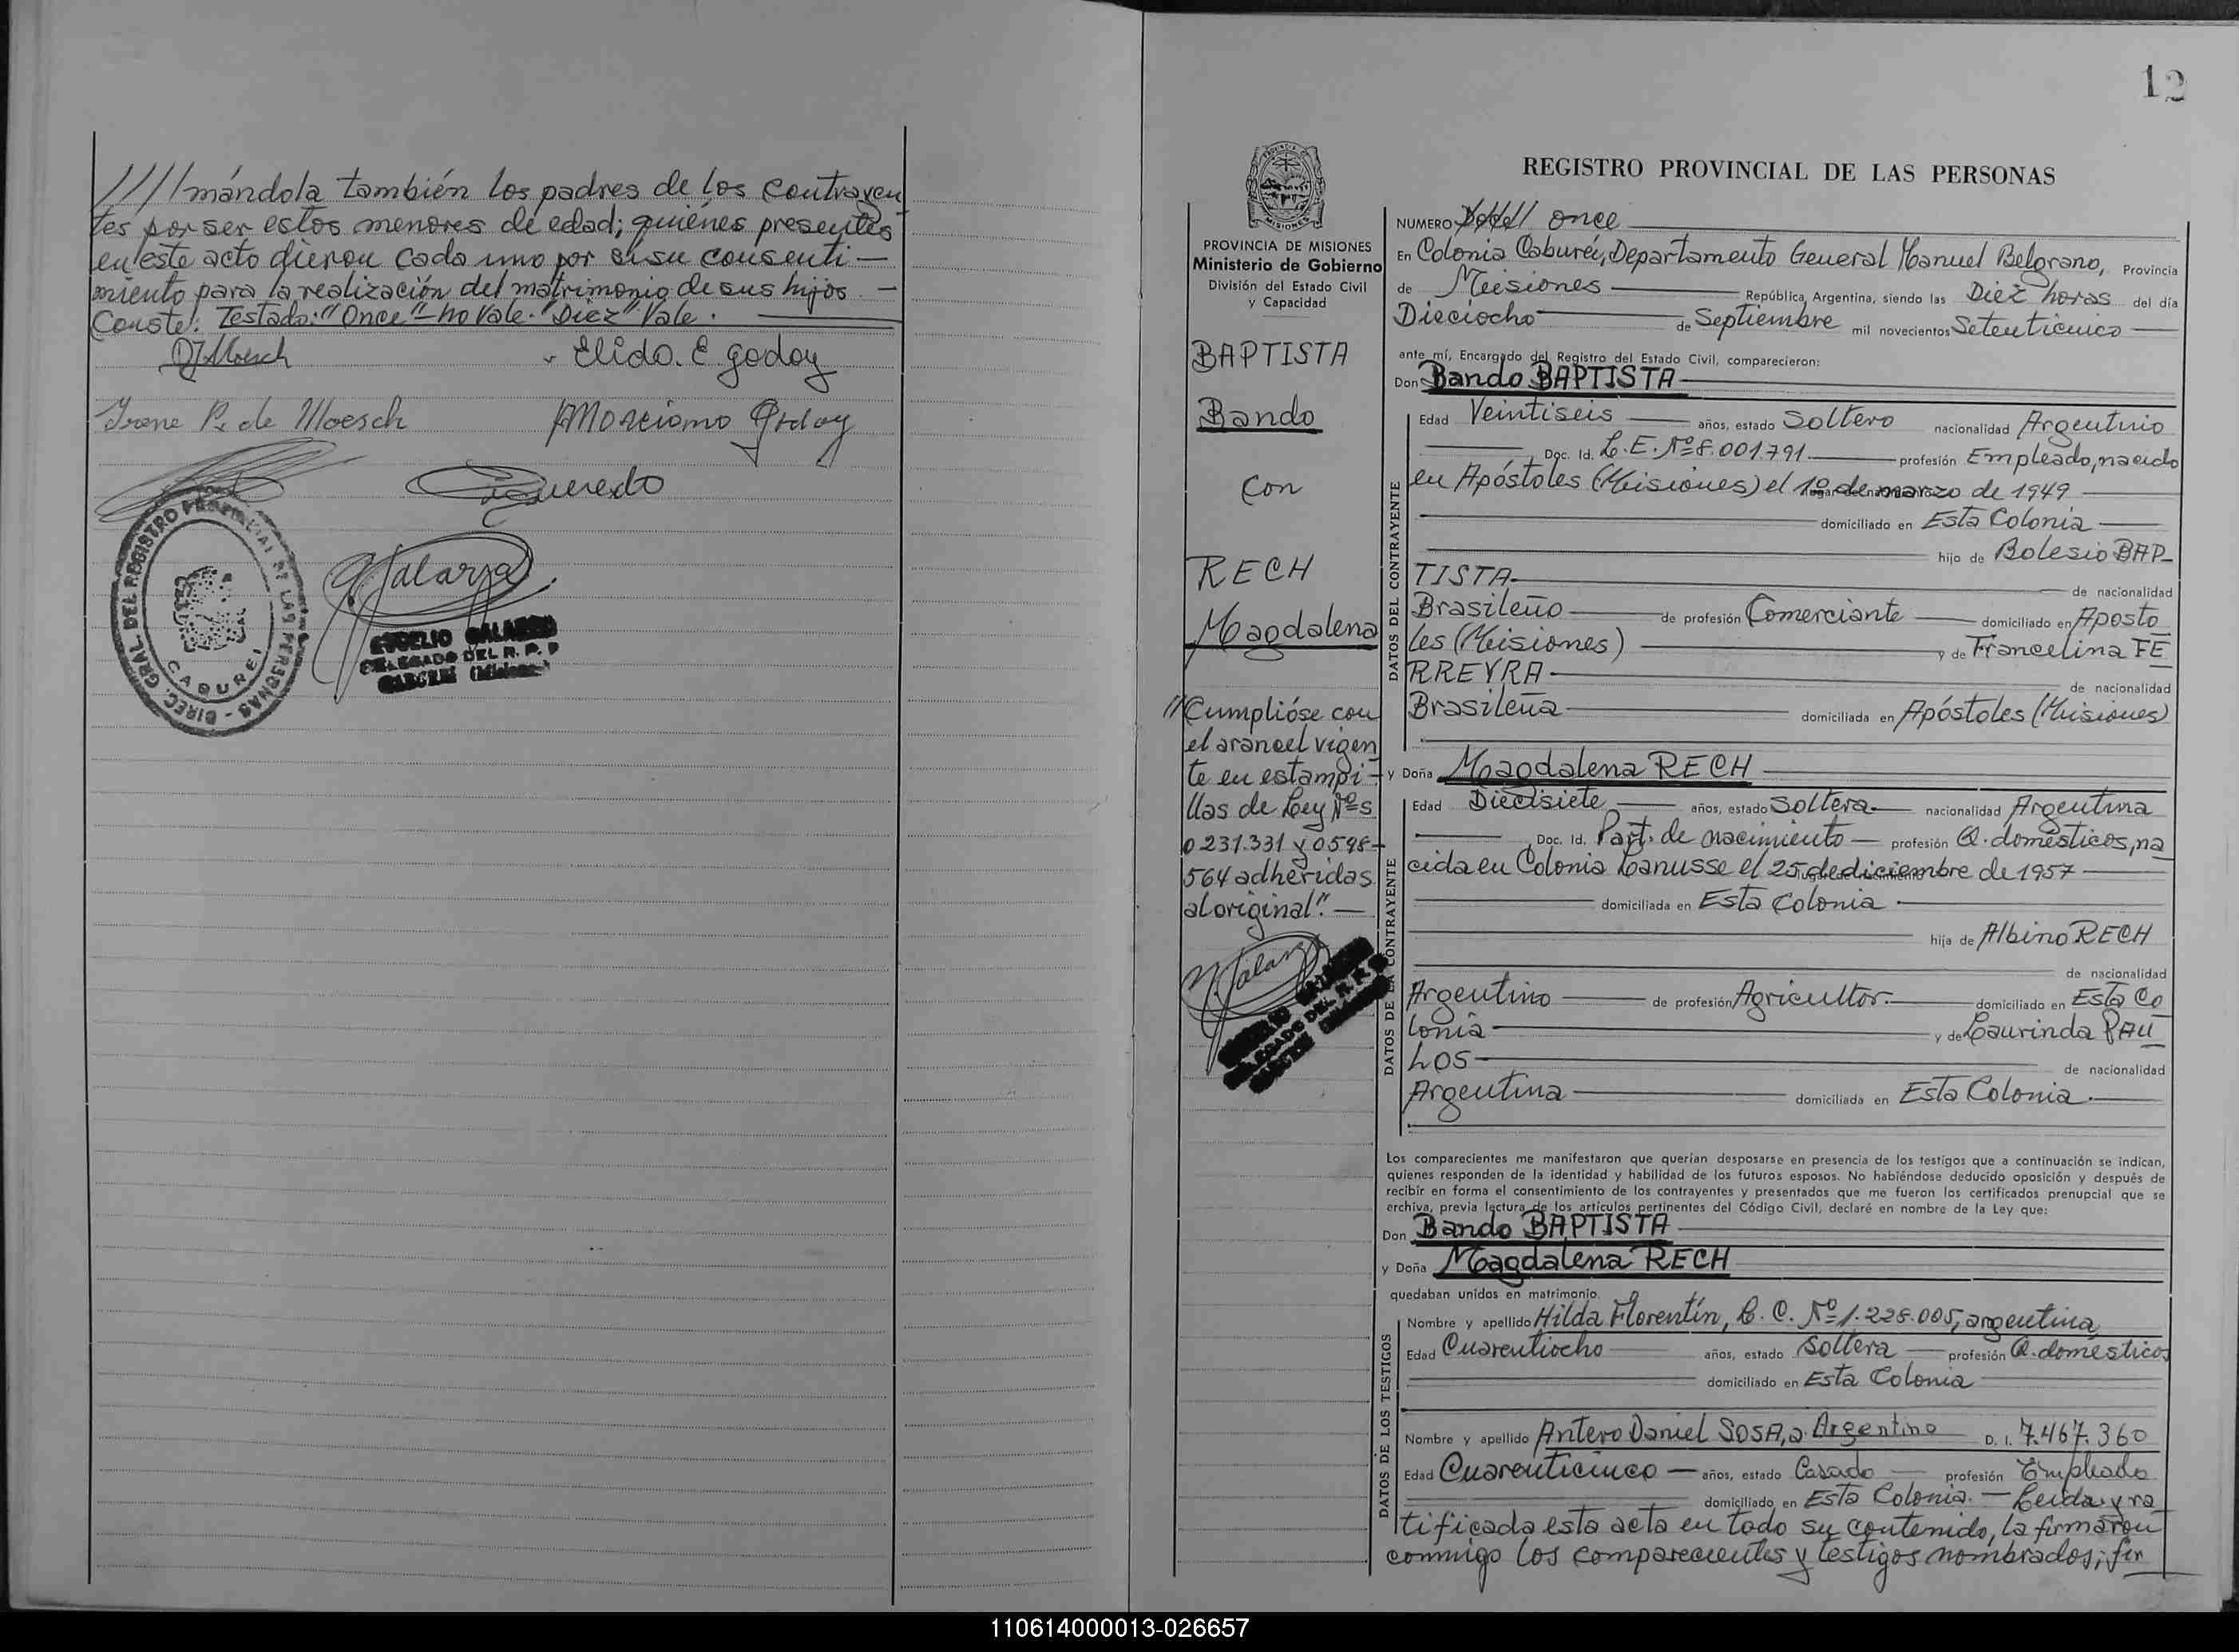 ////mándola también los padres de los contrayen
tes por ser estos menores de edad; quiénes presentes
en este acto dieron cada uno por si su consenti-
miento para la realización del matrimonio de sus hijos.-
Conste: Testado: "Once"-no vale. "Diez" Vale.
Elido. E. Godoy
Irene P. de Moesch
Marciano Godoy
Figueredo
Galarza
DIREC. GRAL. DEL REGISTRO PROVINCIAL DE LAS PERSONAS - CABUREI
EUGELIO GALARZA
DELEGADO DEL R. P. P
CABUREI (Misiones)
12
REGISTRO PROVINCIAL DE LAS PERSONAS
PROVINCIA DE MISIONES
Ministerio de Gobierno
División del Estado Civil
y Capacidad
BAPTISTA
Bando
con
RECH
Magdalena
"Cumplióse con
el arancel vigen
te en estampi-
llas de Ley Nºs
0237.331 y 0598-
564 adheridas
al original".-
NUMERO once
En Colonia Caburéi, Departamento General Manuel Belgrano, Provincia
de Misiones República Argentina, siendo las Diez horas del día
Dieciocho de Septiembre mil novecientos Setenticinco
ante mí, Encargado del Registro del Estado Civil, comparecieron:
Don Bando BAPTISTA
DATOS DEL CONTRAYENTE
Edad Veintiseis años, estado Soltero nacionalidad Argentino
Doc. Id. L.E. Nº 8.001.791 profesión Empleado, nacido
en Apóstoles (Misiones) el 1º de marzo de 1949
domiciliado en Esta Colonia
hijo de Bolesio BAP-
TISTA de nacionalidad
Brasileño de profesión Comerciante domiciliado en Aposto
les (Misiones) y de Francelina FE
RREYRA de nacionalidad
Brasileña domiciliada en Apóstoles (Misiones)
y Doña Magdalena RECH
DATOS DE LA CONTRAYENTE
Edad Diecisiete años, estado Soltera nacionalidad Argentina
Doc. Id. Part. de nacimiento profesión Q. domésticos, na
cida en Colonia Lanusse el 25 de diciembre de 1957
domiciliada en Esta Colonia
hija de Albino RECH
de nacionalidad
Argentino de profesión Agricultor. domiciliado en Esta Co
lonia y de Laurinda PAU
LOS de nacionalidad
Argentina domiciliada en Esta Colonia.
Los comparecientes me manifestaron que querían desposarse en presencia de los testigos que a continuación se indican,
quienes responden de la identidad y habilidad de los futuros esposos. No habiéndose deducido oposición y después de
recibir en forma el consentimiento de los contrayentes y presentados que me fueron los certificados prenupcial que se
archiva, previa lectura de los artículos pertinentes del Código Civil, declaré en nombre de la Ley que:
Don Bando BAPTISTA
y Doña Magdalena RECH
quedaban unidos en matrimonio.
DATOS DE LOS TESTIGOS
Nombre y apellido Hilda Florentín, L. C. Nº 1.228.005, argentina
Edad Cuarentiocho años, estado Soltera profesión Q. domésticos
domiciliado en Esta Colonia
Nombre y apellido Antero Daniel SOSA, Argentino D. I. 7.467.360
Edad Cuarenticinco años, estado Casado profesión Empleado
domiciliado en Esta Colonia. - Leida y ra
tificada esta acta en todo su contenido, la firmaron
conmigo los comparecientes y testigos nombrados; fir
110614000013-026657